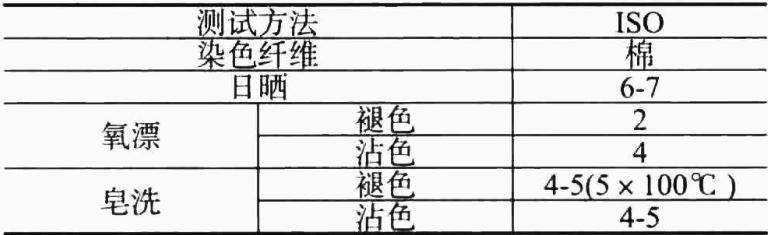 测试方法 ISO
染色纤维 棉
日晒 6-7
氧漂 褪色 2
沾色 4
皂洗 褪色 4-5(5 × 100℃ )
沾色 4-5